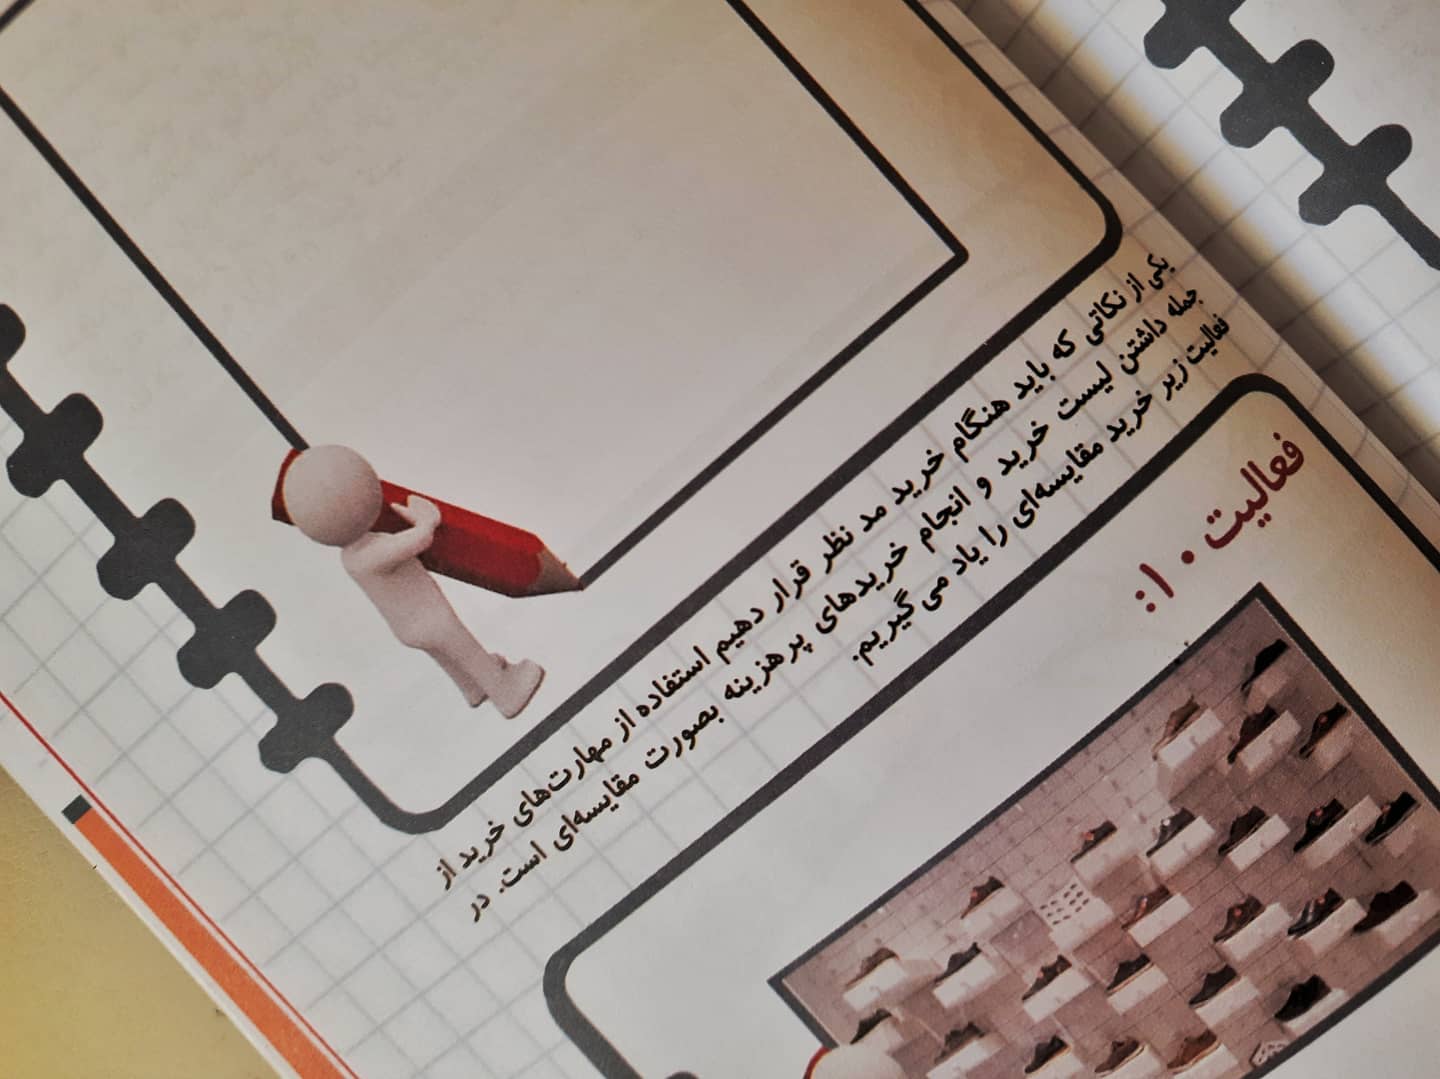 یکی از نکاتی که باید هنگام خرید مد نظر قرار دهیم استفاده از مهارت‌های خرید از
جمله داشتن لیست خرید و انجام خریدهای پر هزینه بصورت مقایسه‌ای است. در
فعالیت زیر خرید مقایسه‌ای را یاد می گیریم.
فعالیت ۱۰: